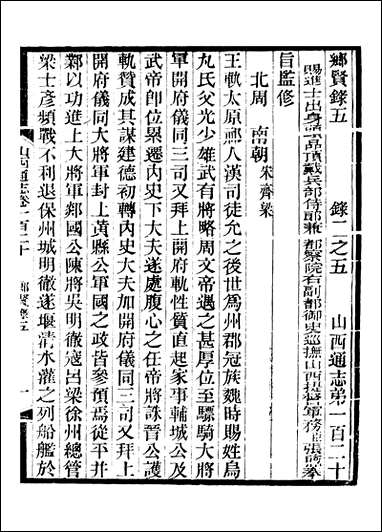 鄉賢錄五　錄二之五　山西通志第一百二十
賜進士出身頭品頂戴兵部侍郎兼都察院右副都御史巡撫山西提督軍務臣張煦奉
旨監修
北周　南朝宋齊梁
王軌太原祁人漢司徒允之後世爲州郡冠族魏時賜姓烏
丸氏父光少雄武有將略周文帝遇之甚厚位至驃騎大將
軍開府儀同三司又拜上開府軌性質直起家事輔城公及
武帝卽位累遷內史下大夫遂處腹心之任帝將誅晉公護
軌贊成其謀建德初轉內史大夫加開府儀同三司又拜上
開府儀同大將軍封上黃縣公軍國之政皆參預焉從平并
鄴以功進上大將軍郯國公陳將吳明徹寇呂梁徐州總管
梁士彥頻戰不利退保州城明徹遂堰清水灌之列船艦於
山西通志卷一百二十　鄉賢錄五　一